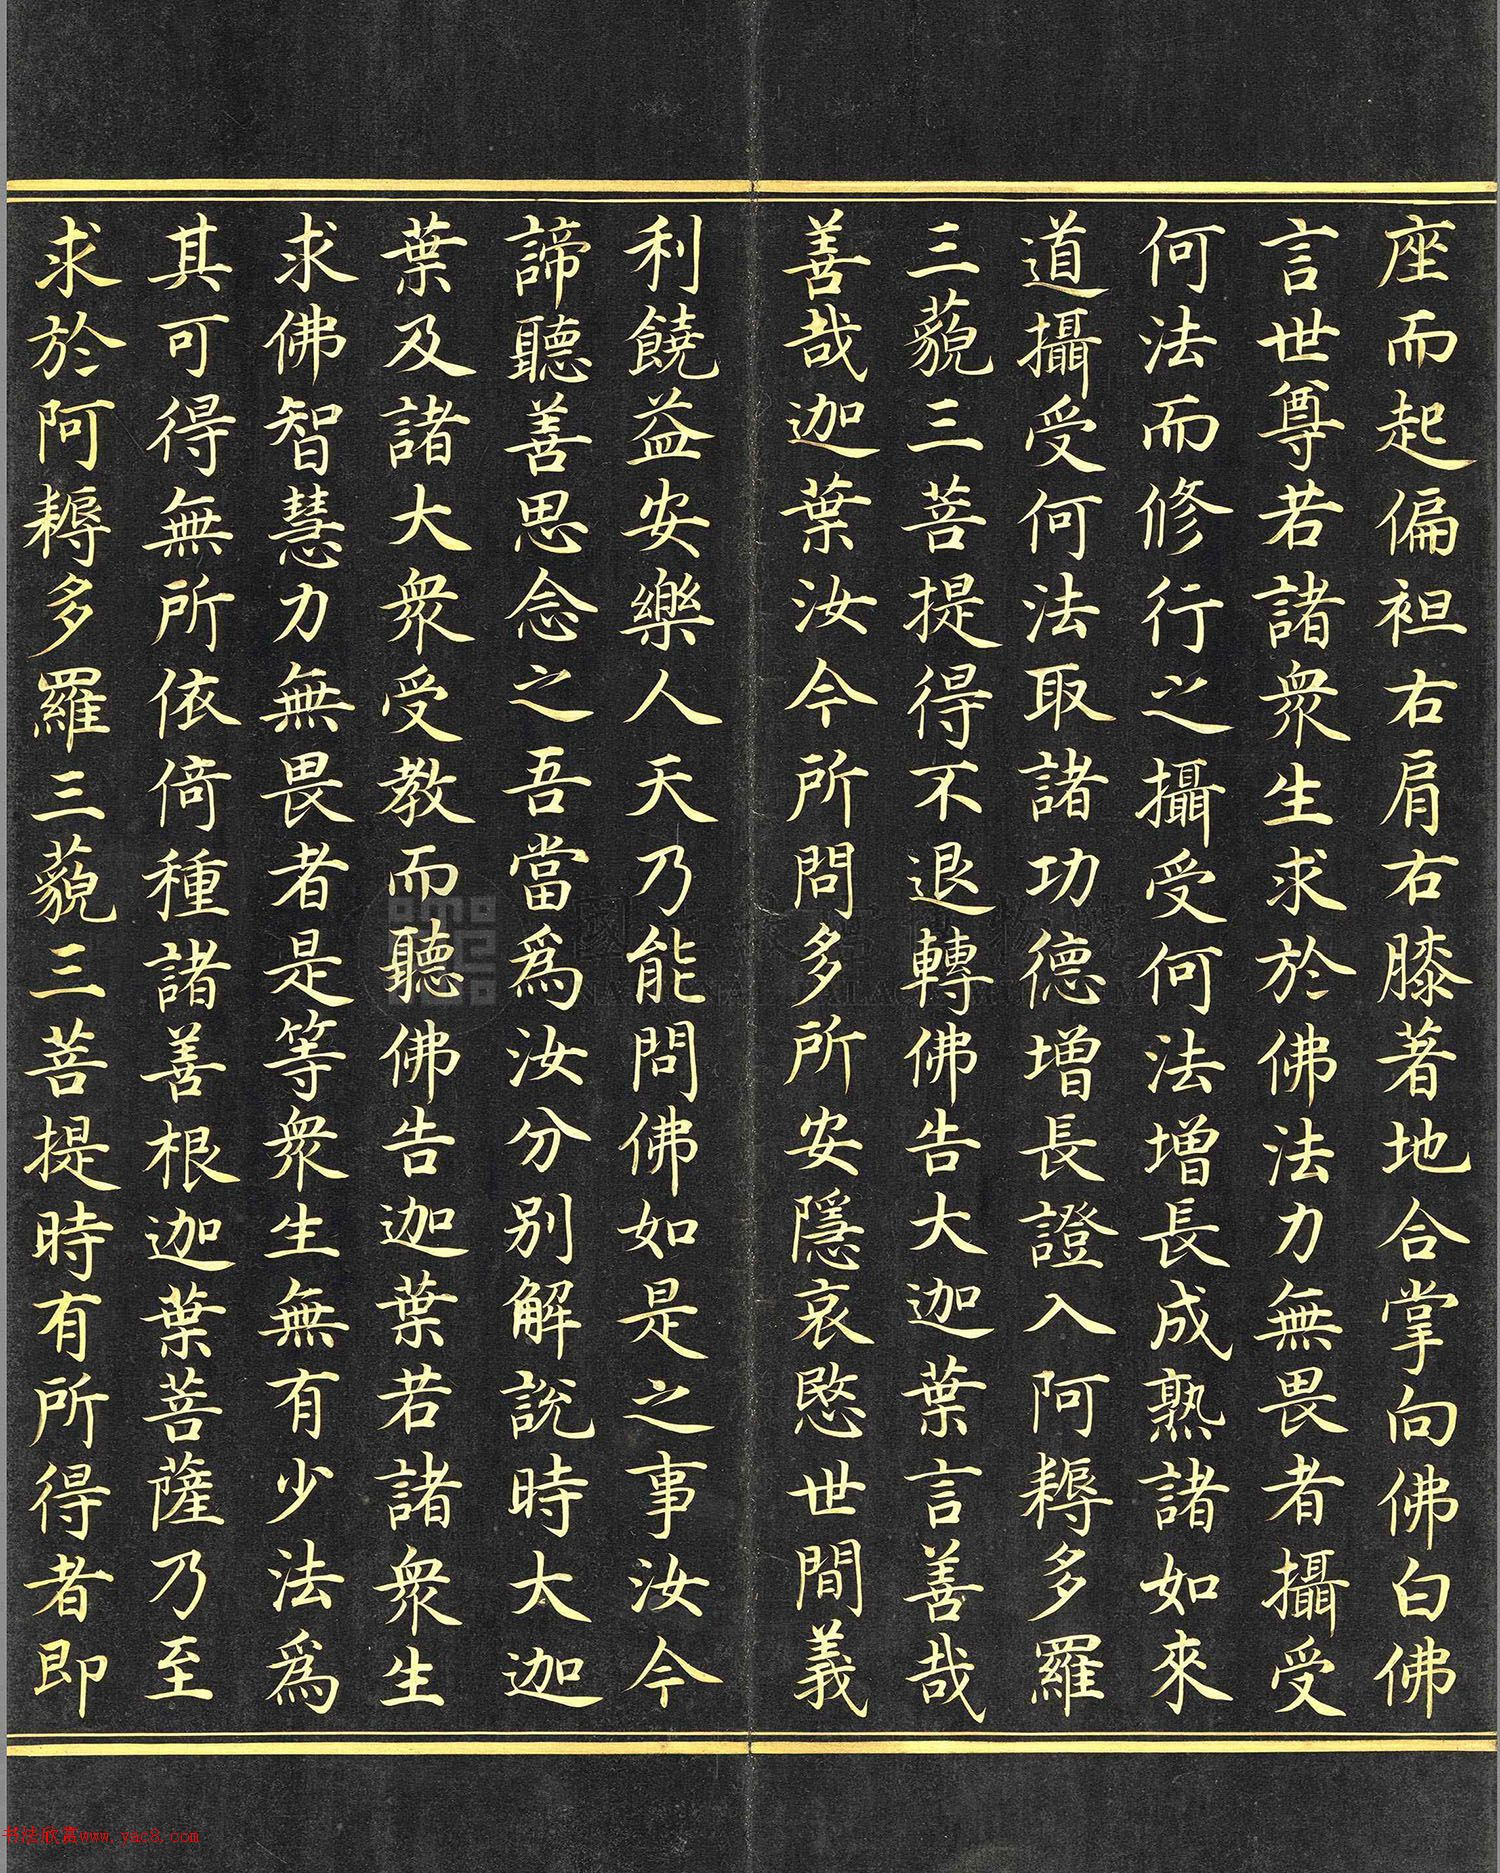 座而起偏袒右肩右膝著地合掌向佛白佛
言世尊若諸眾生求於佛法力無畏者攝受
何法而修行之攝受何法增長成熟諸如來
道攝受何法取諸功德增長證入阿耨多羅
三藐三菩提得不退轉佛告大迦葉言善哉
善哉迦葉汝今所問多所安隱哀愍世間義
利饒益安樂人天乃能問佛如是之事汝今
諦聽善思念之吾當為汝分別解說時大迦
葉及諸大眾受教而聽佛告迦葉若諸眾生
求佛智慧力無畏者是等眾生無有少法為
其可得無所依倚種諸善根迦葉菩薩乃至
求於阿耨多羅三藐三菩提時有所得者即
國立故宮博物院
NATIONAL PALACE MUSEUM
书法欣赏www.yac8.com